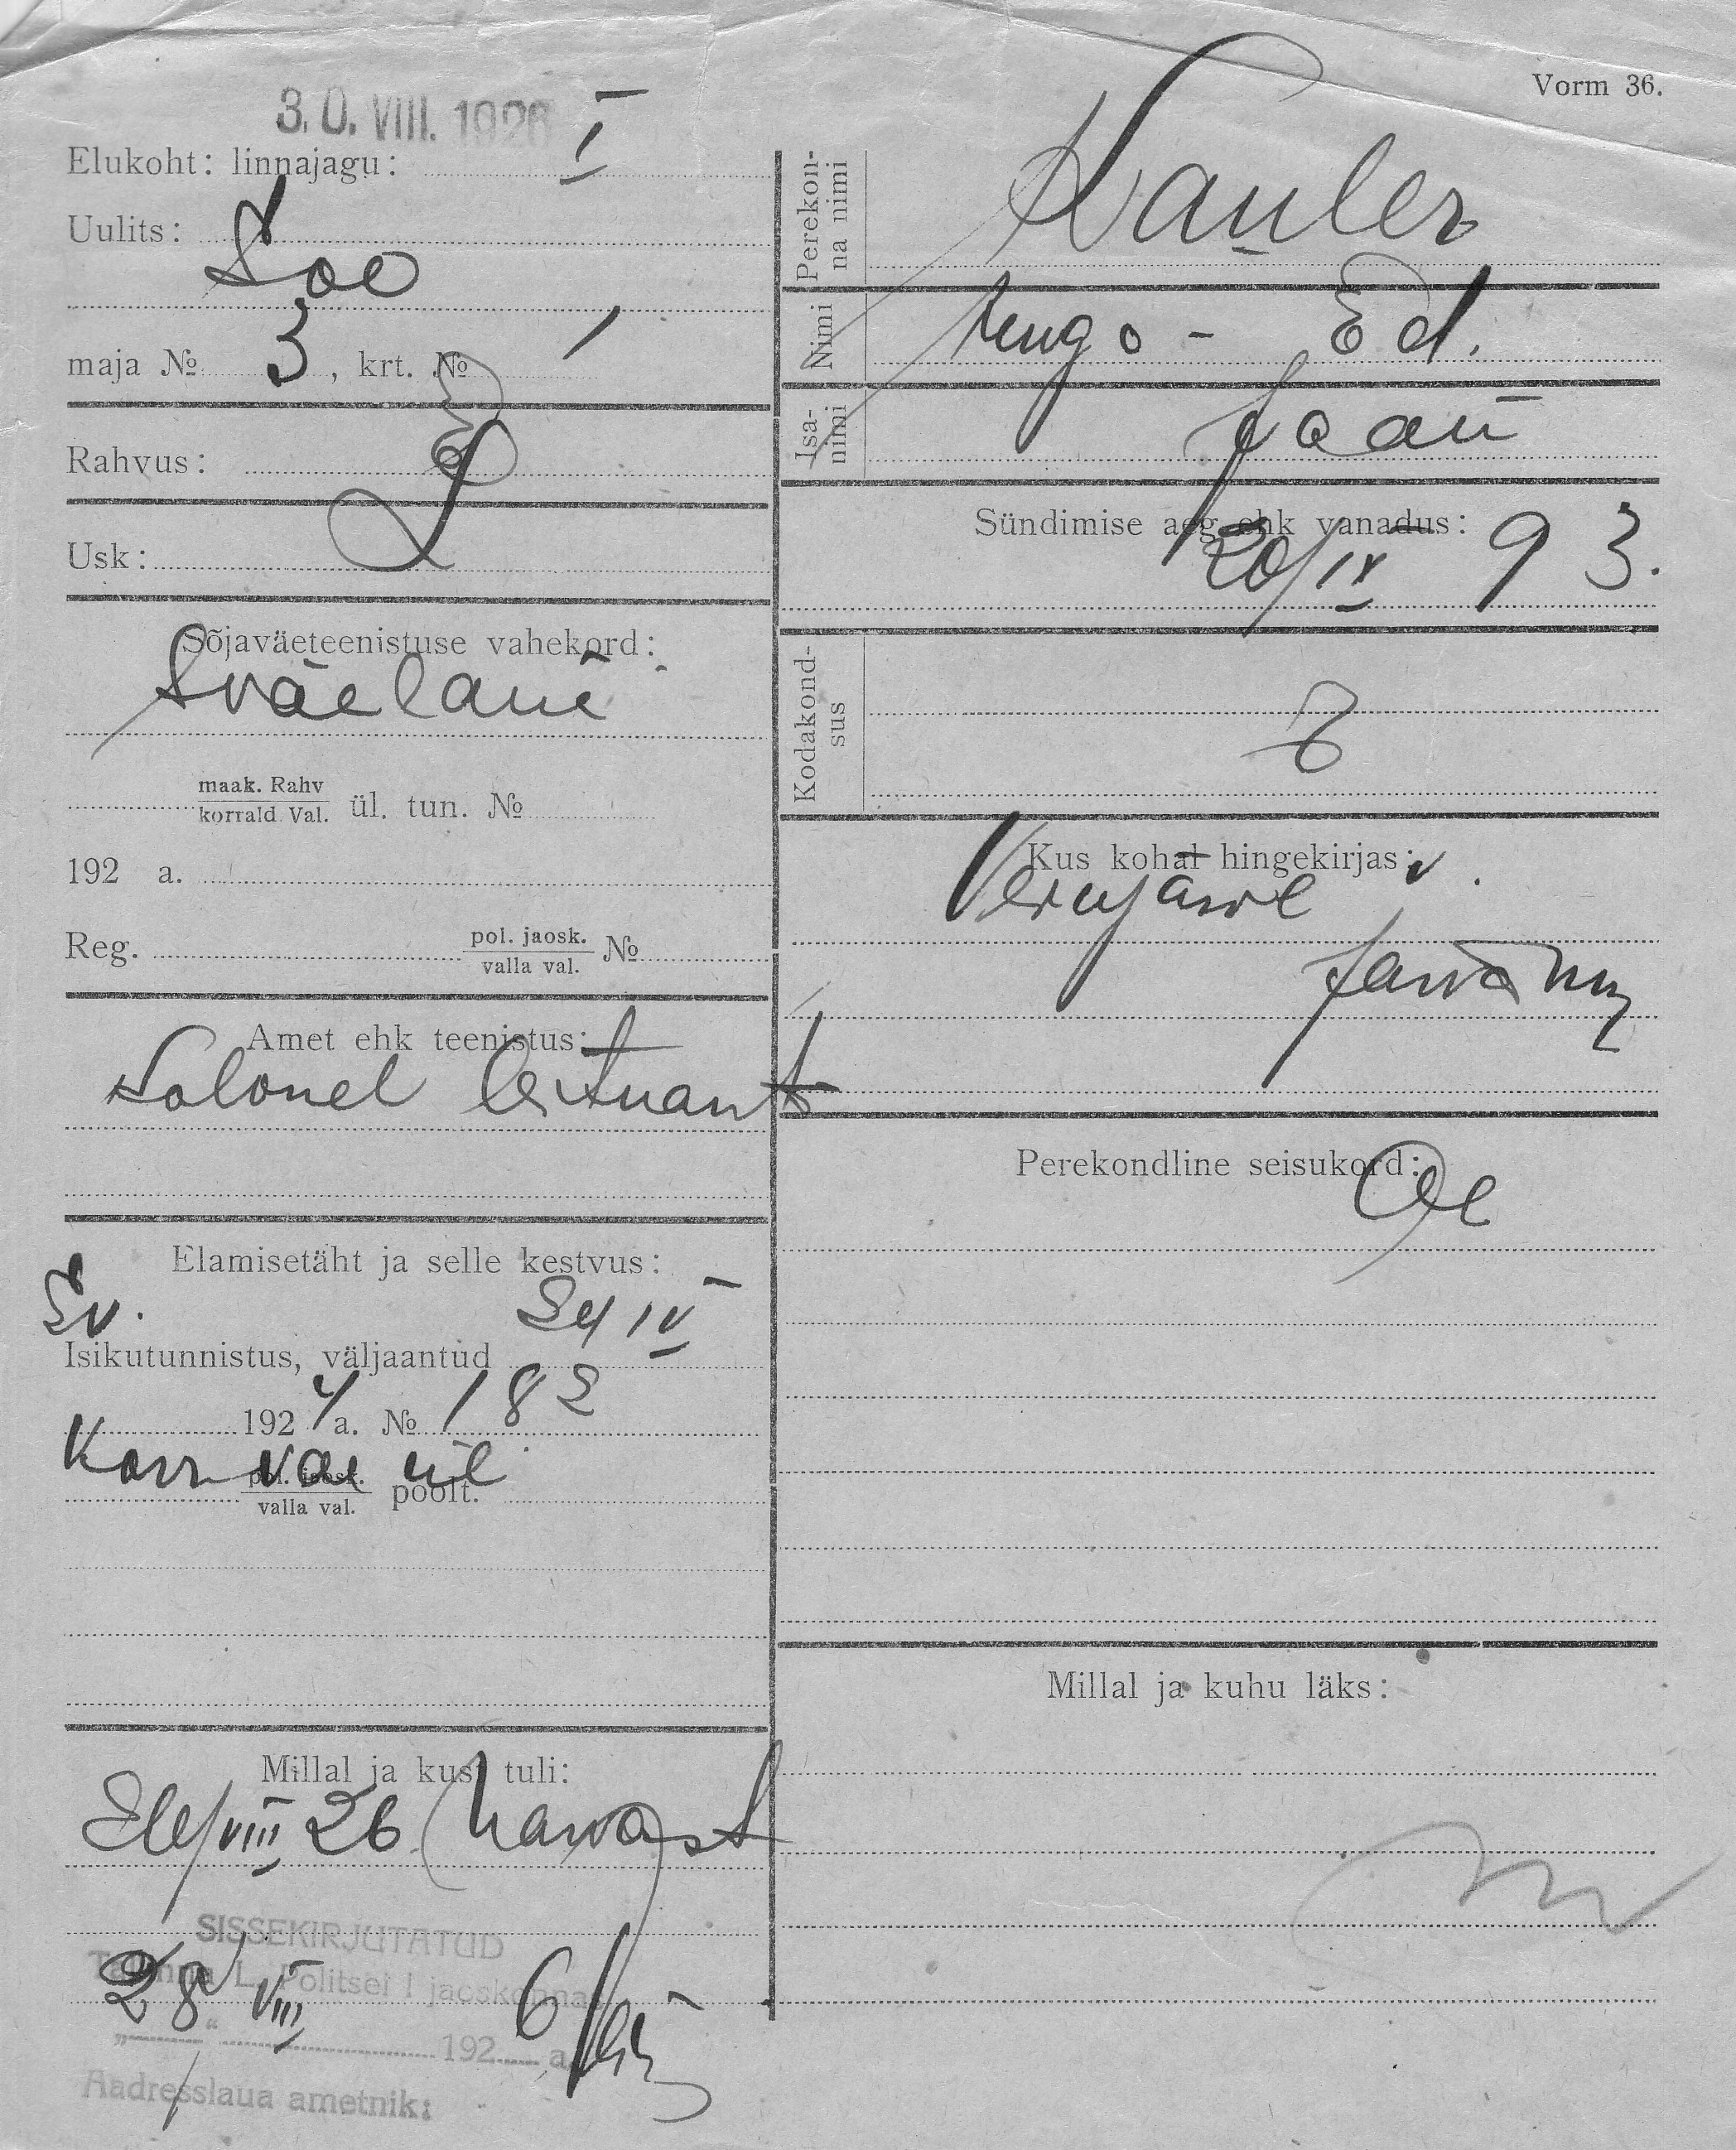 Vorm 36.
3.0. VIII. 1926
Elukoht: linnajagu: I
Uulits: Soo
maja № 3, krt. № 1
Rahvus: E
Usk: L
Sõjaväeteenistuse vahekord:
Sväelane
maak. Rahv
korrald. Val. ül. tun. №
192 a.
Reg. pol. jaosk.
valla val. №
Amet ehk teenistus:
Kolonel leitnant
Elamisetäht ja selle kestvus:
Sv. 24 IV
Isikutunnistus, väljaantud
192 4 a. № 182
Korr vae ül
pol. jaosk.
valla val. poolt.
Millal ja kust tuli:
VIII 26 Narvast
SISSEKIRJUTATUD
Tallinna L. Politsei I jaoskonnas
28 VIII 192 6 a.
Aadresslaua ametnik:
Perekon-
na nimi
Kauler
Nimi
Hugo - Ed.
Isa-
nimi
Jaan
Sündimise aeg ehk vanadus:
20/IX 93.
Kodakond-
sus
E
Kus kohal hingekirjas:
v.
Järva
Perekondline seisukord:
Millal ja kuhu läks: